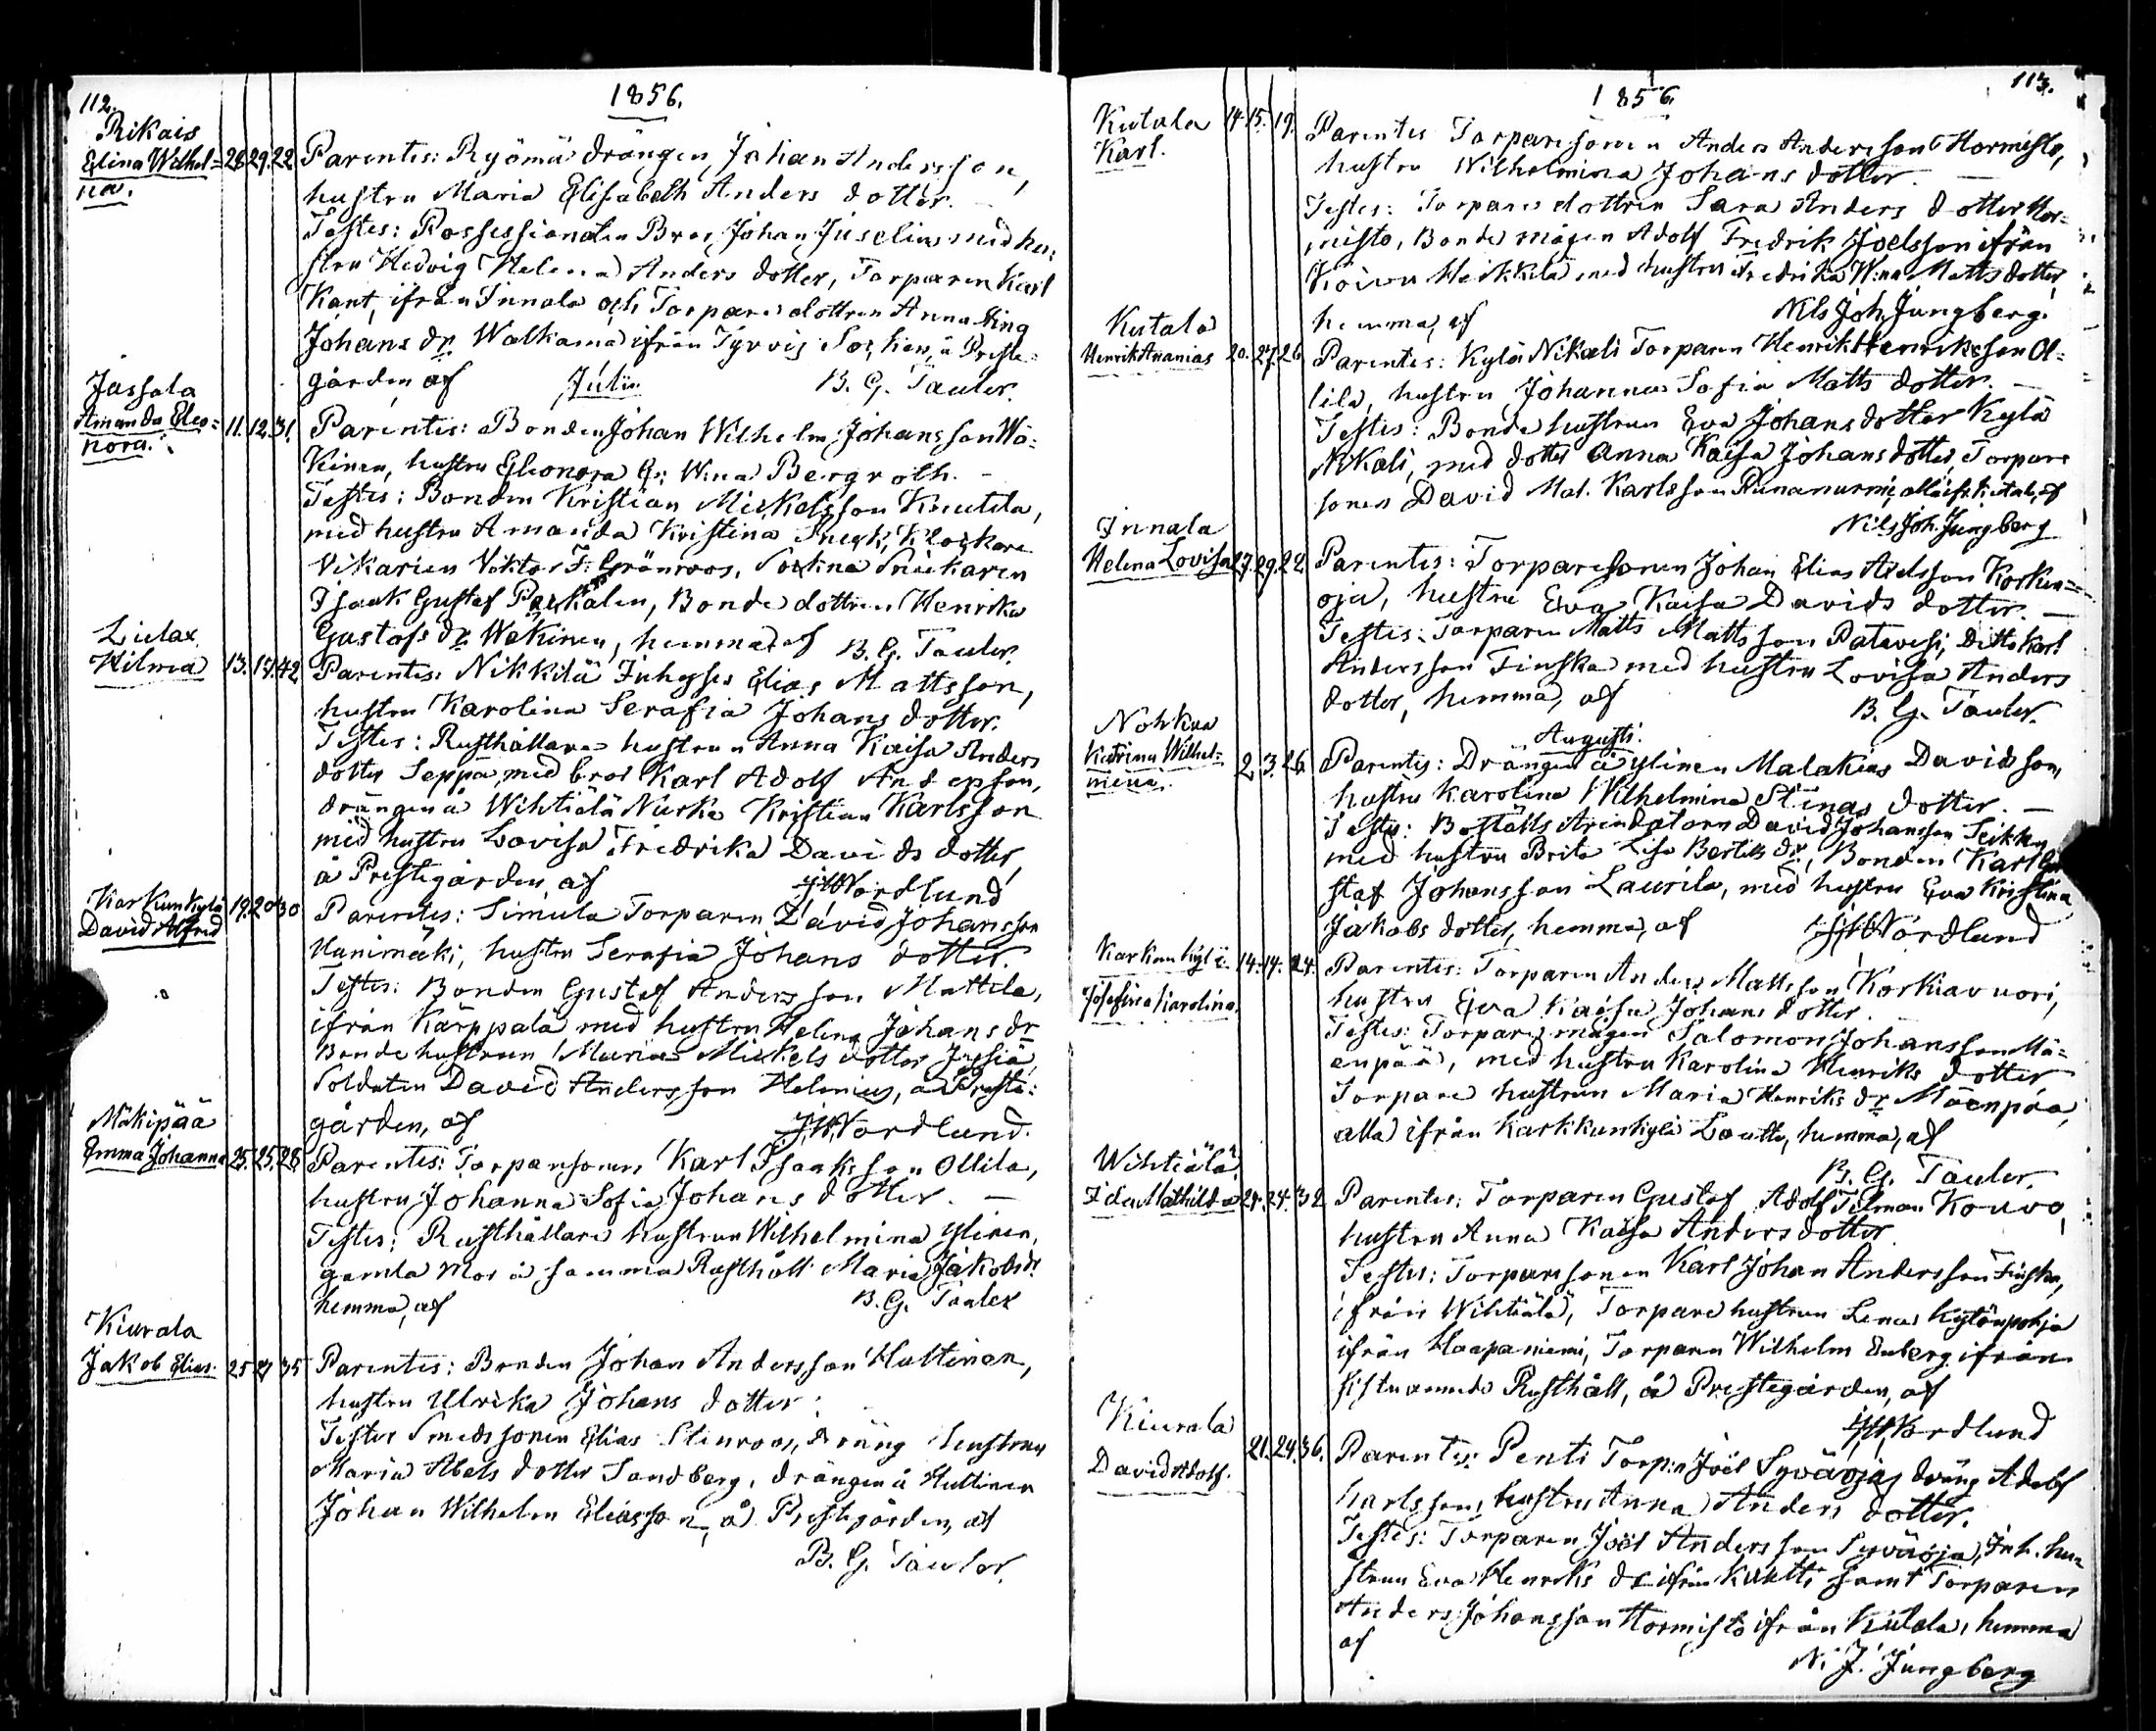 112.
1856.
Rikais
Elina Wilhel=
na.
28 29. 22
Parentes: Ryömä drängen Johan Andersson,
hustru Maria Elisabeth Anders dotter. –
Testes: Possessionaten Bror Johan Juselius med hu=
stru Hedvig Helena Anders dotter, Torparen Karl
Kant, ifrån Innala och Torpare dottren Anna Stina
Johans dr. Walkama ifrån Tyrvis Socken, å Preste=
gården, af B. G. Tauler.
Julii.
Jassala
Amanda Eleo=
nora.
11. 12. 31.
Parentes: Bonden Johan Wilhelm Johansson Wä=
kinen, hustru Eleonora G: Wina Bergroth. –
Testes: Bonden Kristian Mickelsson Knutila,
med hustru Amanda Kristina Klockare
Vikarien Viktor F. Grönroos, Sockne Snickaren
Isaak Gustaf Bonde dottren Henrika
Gustafs dr. Wäkinen, hemma, af B. G. Tauler.
Liulax
Hilma
13. 14. 42
Parentes: Nikkilä Inhyses Elias Mattsson,
hustru Karolina Serafia Johans dotter.
Testes: Rusthållare hustrun Anna Kaisa Anders
dotter Seppä, med bror Karl Adolf Andersson,
drängen å Wihtiälä Nurka Kristian Karlsson
med hustru Lovisa Fredrika Davids dotter,
å Prestegården, af J. W. Nordlund
Karkunkylä
David Alfred
19. 20 30
Parentes: Simula Torparen David Johansson
Hanimäki, hustru Serafia Johans dotter.
Testes: Bonden Gustaf Andersson Mattila,
ifrån Kärppälä med hustru Helena Johans dr
Bonde hustrun Maria Mickels dotter Jysiä,
Soldaten David Andersson Helenius, å Preste=
gården, af J. W. Nordlund.
Mäkipää
Emma Johanna
25. 25. 28
Parentes: Torparsonen Karl Isaaksson Ollila,
hustru Johanna Sofia Johans dotter. –
Testes: Rusthållare hustrun Wilhelmina Ylinen,
gamla Mor å samma Rusthåll Maria Jakobs dr.
hemma, af B. G. Tauler
Kiurala
Jakob Elias.
25 27 35
Parentes: Bonden Johan Andersson Huttinen,
hustru Ulrika Johans dotter.
Testes Smedssonen Elias Stenroos, dräng hustrun
Maria Abels dotter Sandberg, drängen å Huttinen
Johan Wilhelm Eliasson, å Prestegården, af
B. G. Tauler.
113.
1856.
Kutala
Karl.
14. 15. 19.
Parentes Torparesonen Anders Andersson Hormisto,
hustru Wilhelmina Johans dotter. –
Testes: Torpare dottren Sara Anders dotter Hor=
misto, Bonde mågen Adolf Fredrik Joelsson ifrån
Koivu Heikkilä med hustru Fredrika Wina Matts dotter,
hemma, af Nils Joh. Jungberg.
Kutala
Henrik Ananias
20. 27. 26
Parentes: Kylä Nikali Torparen Henrik Henriksson Ol=
lila, hustru Johanna Sofia Matts dotter. –
Testes: Bonde hustrun Eva Johans dotter Kylä
Nikali, med dotter Anna Kaisa Johans dotter, Torpare
sonen David Mat. Karlsson Runanurmi, alla ifr. Kutala, af
Nils Joh. Jungberg
Innala
Helena Lovisa
27. 29. 22.
Parentes: Torparesonen Johan Elias Axelsson Korkia=
oja, hustru Eva Kaisa Davids dotter. –
Testes: Torparen Matts Mattsson Patavesi, Ditto Karl
Andersson Finska med hustru Lovisa Anders
dotter, hemma, af B. G. Tauler.
Augusti.
Nohkua
Katrina Wilhel=
mina.
2 3. 26.
Parentes: Drängen å Ylinen Malakias Davidsson,
hustru Karolina Wilhelmina Stinas dotter. –
Testes: Boställs Arendatorn David Johansson Seikku
med hustru Brita Lisa Bertils dr, Bonden Karl Gu
staf Johansson Laurila, med hustru Eva Kristina
Jakobs dotter, hemma, af J. W. Nordlund
Karkunkylä.
Josefina Karolina.
14. 14. 24.
Parentes: Torparen Anders Mattsson Korkiavuori,
hustru Eva Kaisa Johans dotter.
Testes: Torpare mågen Salomon Johansson Mä=
enpää, med hustru Karolina Henriks dotter
Torpare hustrun Maria Henriks dr Mäenpää,
alla ifrån Karkkunkylä Lautto, hemma, af
B. G. Tauler.
Wihtiälä
Ida Mathilda
24. 24. 32
Parentes: Torparen Gustaf Adolf Tilman Kouvo,
hustru Anna Kaisa Anders dotter.
Testes: Torparesonen Karl Johan Andersson Finska,
ifrån Wihtiälä, Torpare hustrun Lena Kylänpohja
ifrån Haapaniemi, Torparen Wilhelm Enberg ifrån
sistnämnde Rusthåll, å Prestegården, af
J. W. Nordlund
Kiurala
David Adolf.
21. 24. 36.
Parentes: Penti Torp:n Joël Syväoja's dräng Adolf
Karlsson, hustru Anna Anders dotter.
Testes: Torparen Joël Andersson Syväoja, Inh. hu=
strun Eva Henriks dr ifrån samt Torparen
Anders Johansson Hormisto ifrån Kutala, hemma
af
N. J. Jungberg